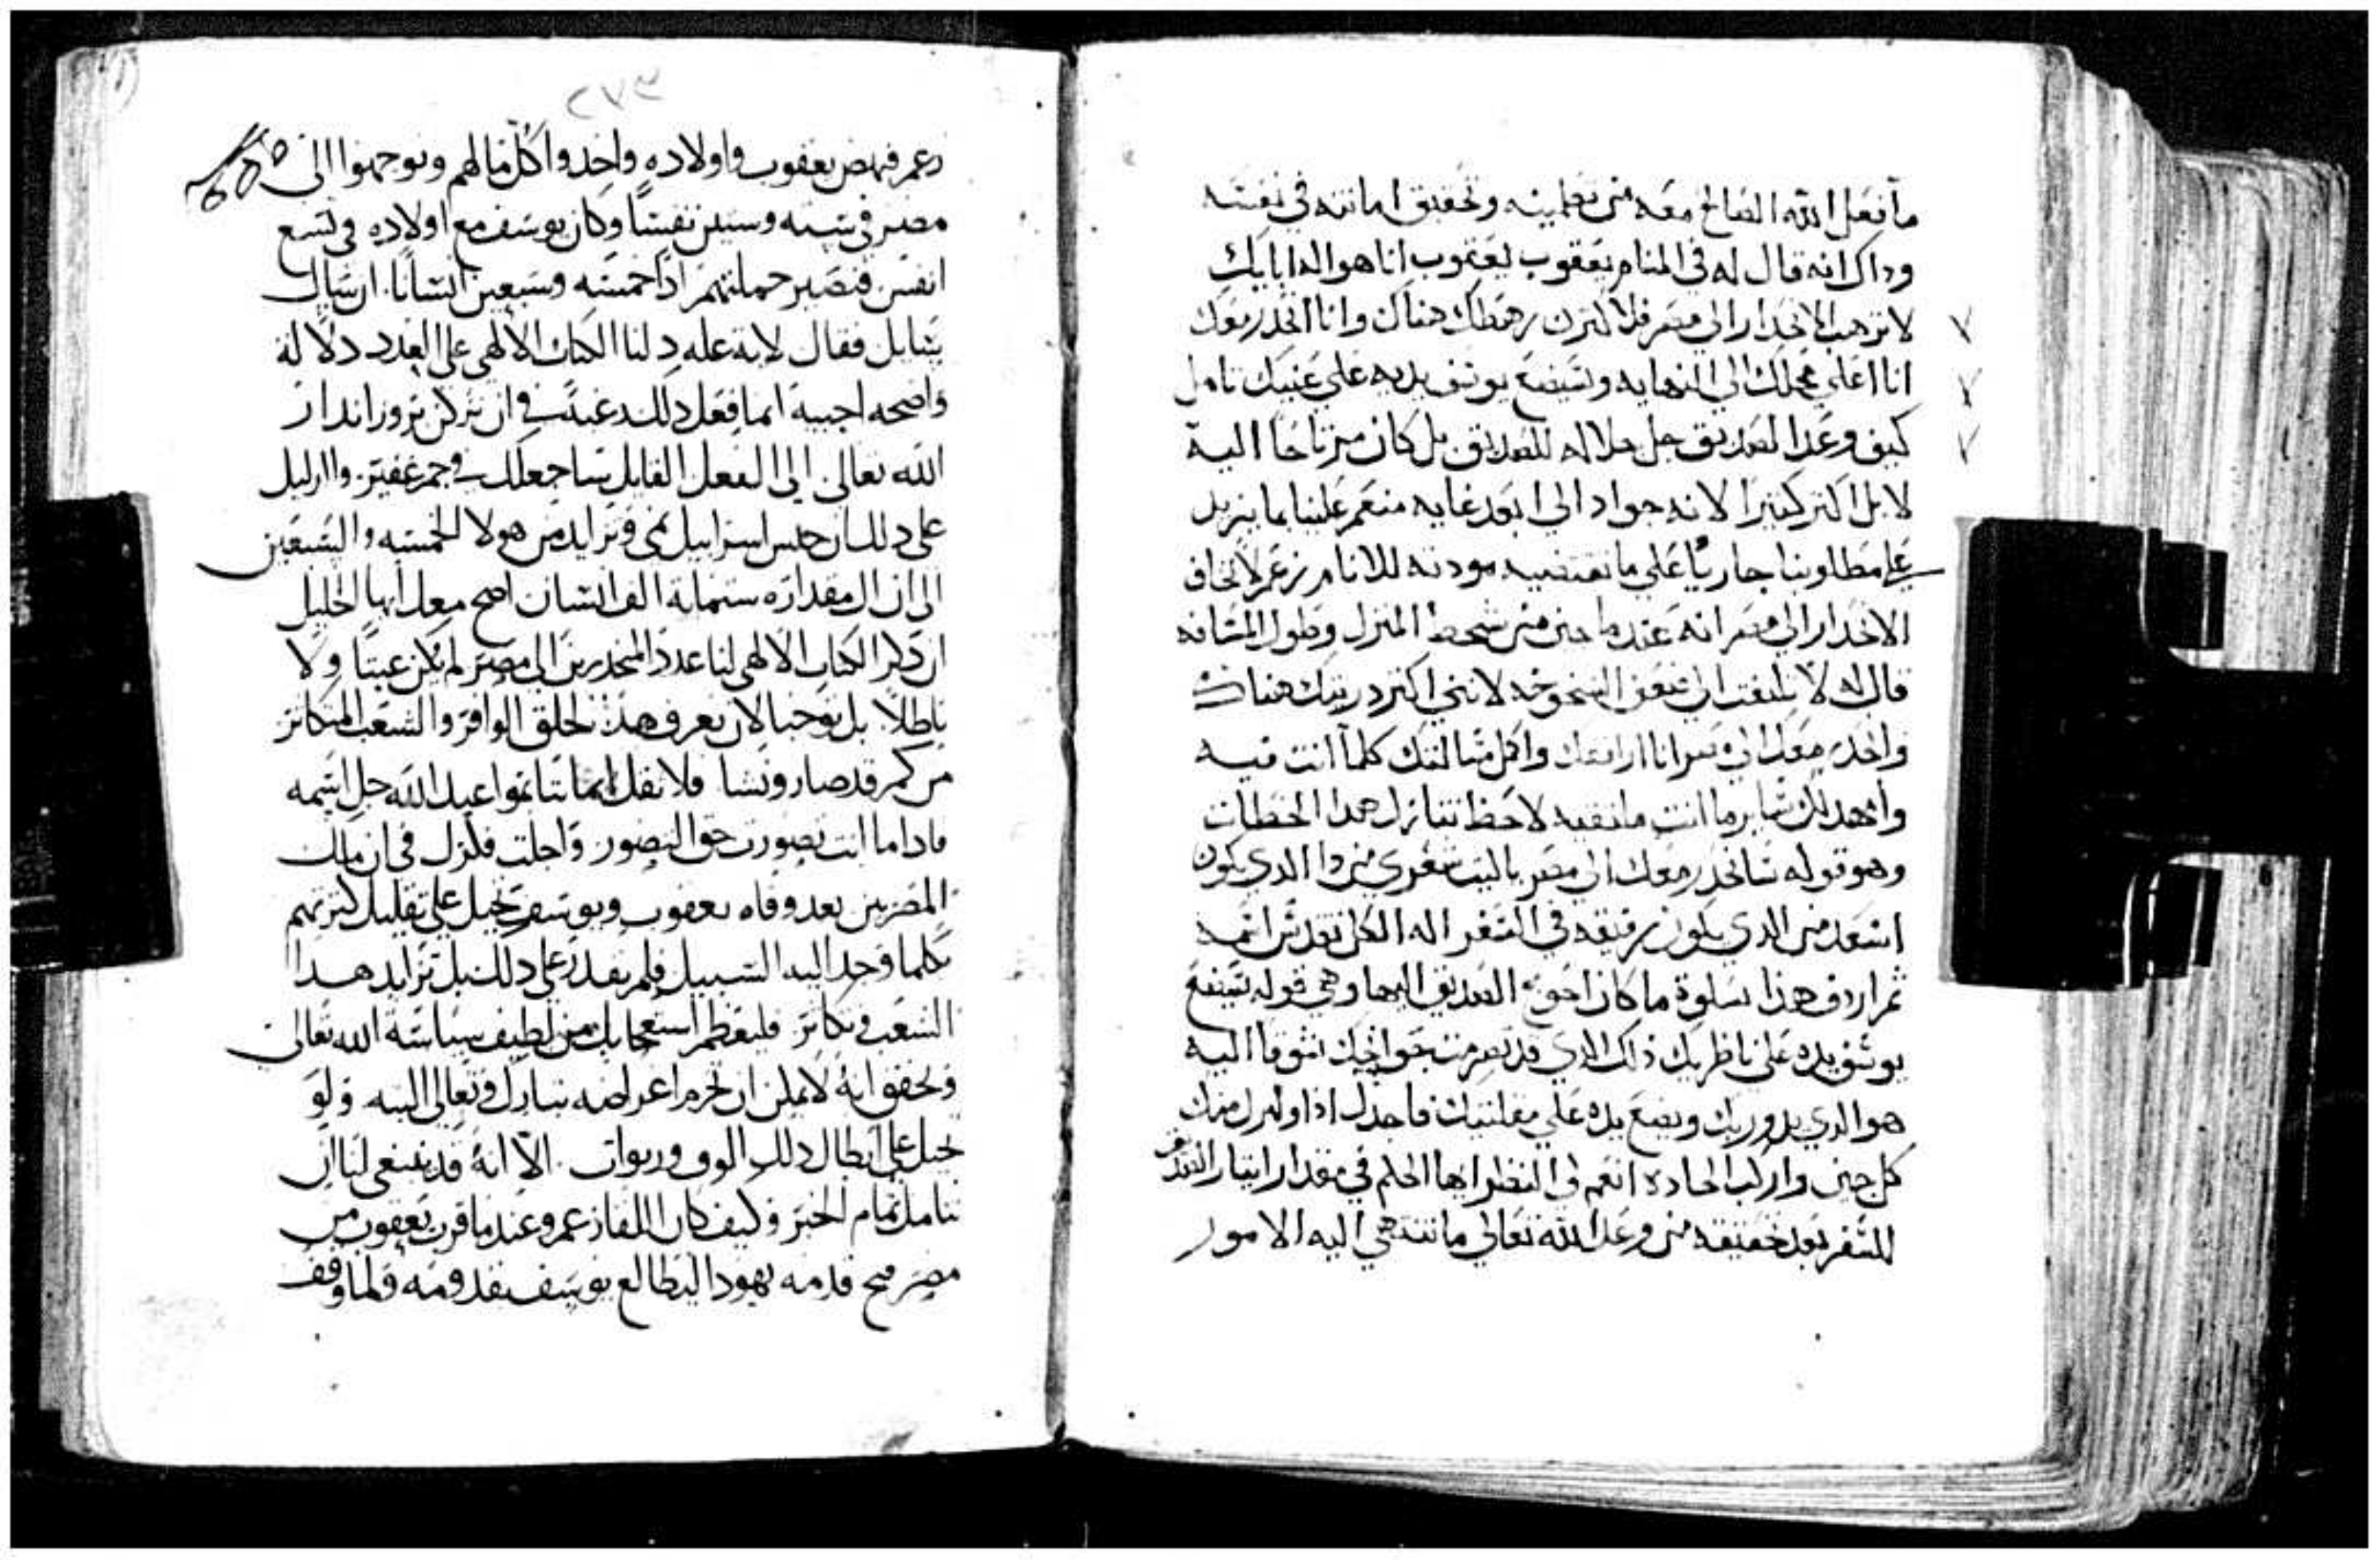 ما فعل الله الصالح معه من تطمينه وتحقيق امانته في نفسه
وداك انه قال له في المنام يعقوب يعقوب انا هو اله ابايك
لا ترهب الانحدار الى مصر فلاكثرن رهطك هناك وانا انحدر معك
انا اعلي محلك الى النهايه وسيضع يوسف يديه على عينيك تامل
كيف وعد الصديق جل جلاله للصديق بل كان مرتاحا اليه
لا بل اكثر كثيرا لانه جواد الى ابعد غايه منعم علينا بما يزيد
على مطلوبنا جاريا على ما تقتضيه مودته للانام زعم لا تخاف
الانحدار الى مصر انه عندما من شحط المنزل وطول المسافه
قال له لا تلتفت الى ضعف الشيخوخه لانني اكثر دريتك هناك
وانحدر معك الى مصر انا ارافقك واكل كلما انت فيه
وامهد لك ساير ما انت لاحظ تنازل هدا الخطاب
وهو قوله سانحدر معك الى مصر يا ليت شعري من دا الدي يكون
اسعد من الدي يكون رفيقه في السفر اله الكل تقدس اسمه
ثم اردف هذا بسلوة ما كان احوج الصديق اليها وهي قوله سيضع
يوسف يده على ناظريك ذاك الدي قد تضرمت جوانحك شوقا اليه
هو الدي ويضع يده على مقلتيك فاجدل اذا ولتزل منك
كل حزن واركب الجادة انعم لي النظر ايها الحليم في مقدار ايثار الصديق
للسفر بعد تحقيقه من وعد الله تعالى ما تنتهي اليه الامور
٢٧٣
زعم فنهض يعقوب واولاده واخدوا كل مالهم وتوجهوا الى
مصر في سته وستين نفسا وكان يوسف مع اولاده في تسع
انفس فتصير جملتهم ادا خمسه وسبعين انسانا. ان سال
سايل فقال لاية عله دلنا الكتاب الالهي على العدد دلالة
واضحه اجيبه انما فعل دلك رغبة في ان نزكن بروز اندار
الله تعالى الى الفعل القايل ساجعلك في جم غفير. والدليل
على دلك ان جنس اسراييل نمى وتزايد من هولا الخمسه والسبعين
الى ان ال مقداره ستماية الف انسان اصح معك ايها الخليل
ان دكر الكتاب الالهي لنا عدد المنحدرين الى مصر لم يكن عبثا ولا
باطلا. بل توخيا لان نعرف هذا الخلق الوافر والشعب المتكاثر
من كم قد صار ونشا فلا نقل ايماننا بمواعيد الله جل اسمه
فادا ما انت تصورت حق التصور واجلت فكرك في ان مالك
المصريين بعد وفاه يعقوب ويوسف تحيل على تقليل كثرتهم
بكلما وجد اليه السبيل فلم يقدر على دلك بل تزايد هدا
الشعب وتكاثر فليعظم استعجابك من لطيف سياسة الله تعالى
وتحقق انه لا يمكن ان تخرم اغراضه تبارك وتعالى البته ولو
تحيل على ابطال دلك الوف وربوات. الا انه قد ينبغي لنا ان
نتامل تمام الخبر وكيف كان اللقا زعم وعندما قرب يعقوب من
مصر قدمه يهودا ليطالع يوسف بقدومه ولما وقف